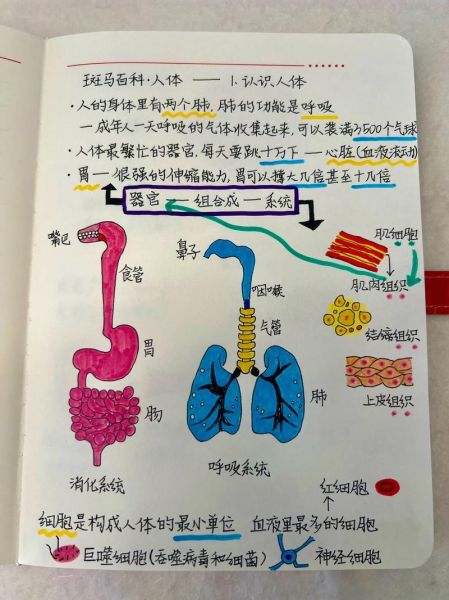 斑马百科·人体 —— 1.认识人体
·人的身体里有两个肺,肺的功能是呼吸
一成年人一天呼吸的气体收集起来,可以装满3500个气球
·人体最繁忙的器官,每天要跳十万下—心脏(血液流动)
·胃—很强的伸缩能力,胃可以撑大几倍甚至十几倍
器官—组合成—系统
嘴巴
食管
胃
肠
消化系统
鼻子
咽喉
气管
肺
呼吸系统
肌细胞
肌肉组织
结缔组织
上皮组织
红细胞
细胞是构成人体的最小单位 血液里最多的细胞
巨噬细胞(吞噬病毒和细菌) 神经细胞